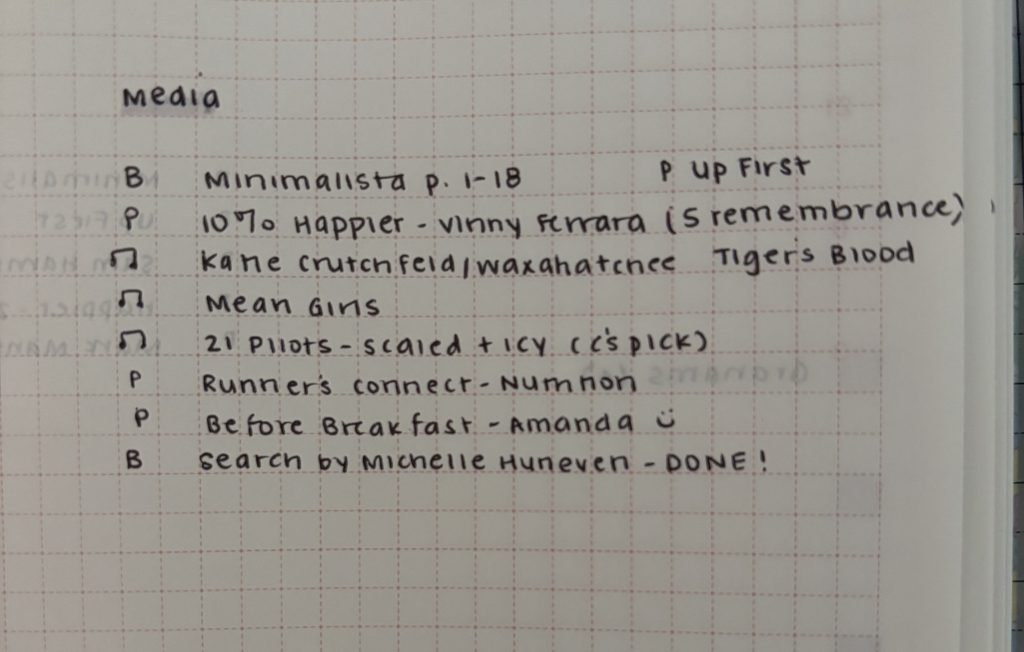 Media
B Minimalista p. 1-18 P Up First
P 10% Happier - Vinny Ferrara (5 remembrance)
♫ Katie Crutchfeld/Waxahatchee Tiger's Blood
♫ Mean Girls
♫ 21 Pilots - Scaled + Icy (C's pick)
P Runner's Connect -
P Before Breakfast - Amanda ☺
B Search by Michelle Huneven - DONE!